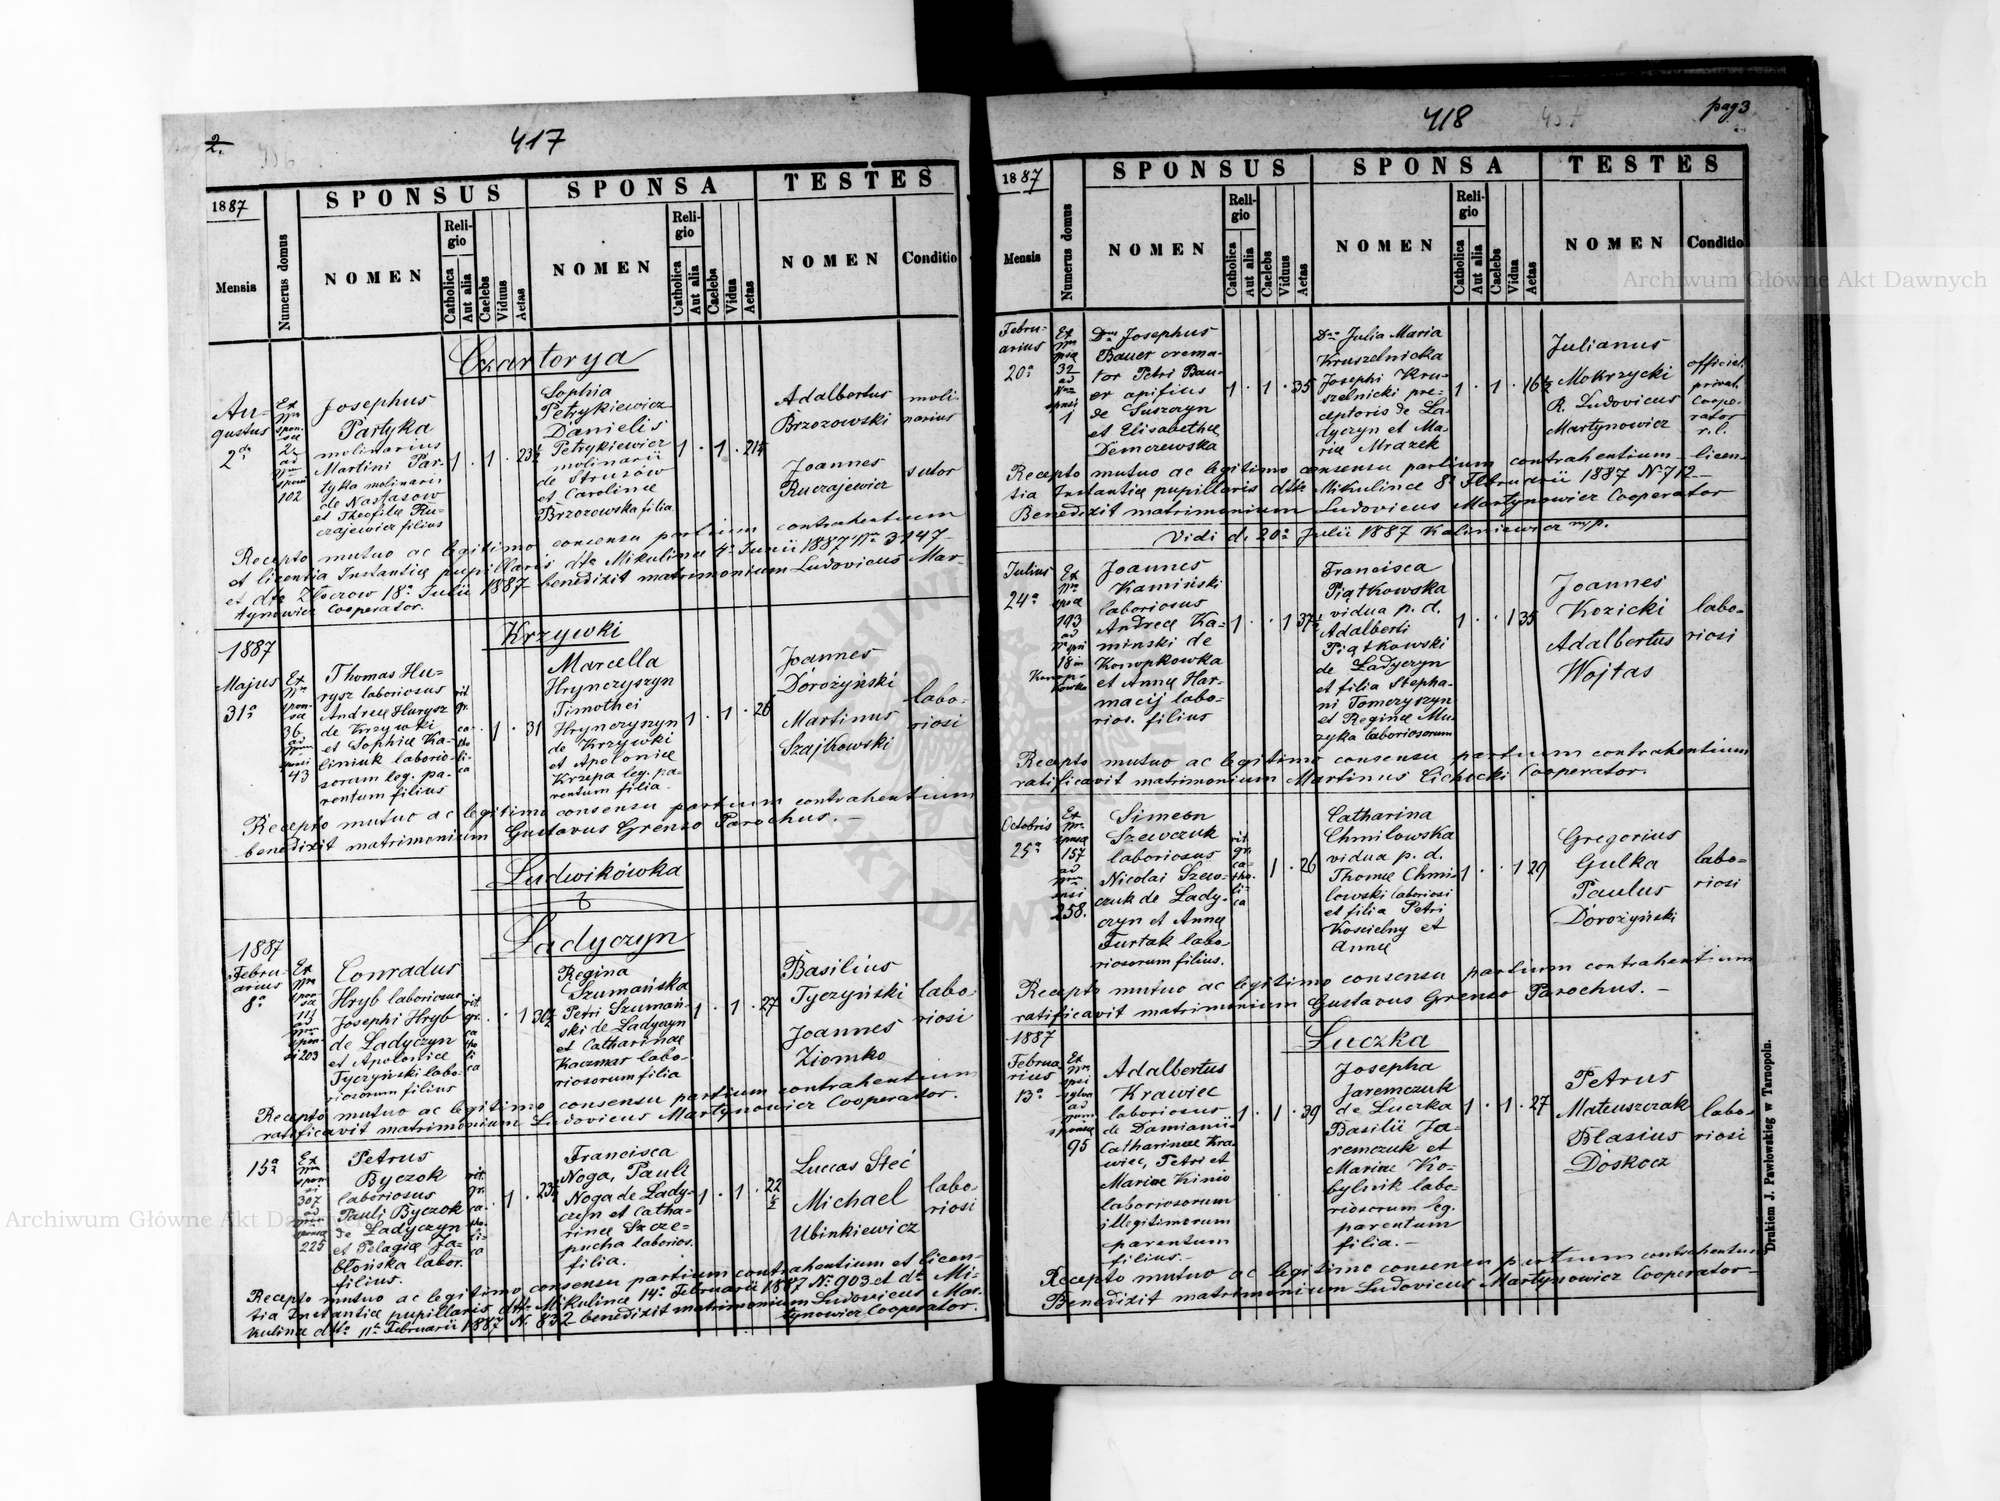 2.
417
1887
Mensis
Numerus domus
SPONSUS
NOMEN
Religio
Catholica
Aut alia
Caelebs
Viduus
Aetas
SPONSA
NOMEN
Religio
Catholica
Aut alia
Caelebs
Vidua
Aetas
TESTES
NOMEN
Conditio
Czartorya
Augustus
2da
Ex
Nro
sponsae
22
ad
Nrum
sponsi
102
Josephus
Partyka
molinarius
Martini Par-
tyka molinarii
de Nastasow
et Theofilae Ru-
czajewicz filius
1 . 1 . 23½
Sophia
Petrykiewicz
Danielis
Petrykiewicz
molinarii
de Strusów
et Carolinae
Brzozowska filia
1 . 1 . 21¼
Adalbertus
Brzozowski
Joannes
Ruczajewicz
moli-
narius
sutor
Recepto mutuo ac legitimo consensu partium contrahentium
et licentia Instantiae pupillaris dtto Mikulince 4a Junii 1887 Nro 3147
et dtto Zloczow 18a Julii 1887 benedixit matrimonium Ludovicus Mar-
tynowicz Cooperator.
Krzywki
1887
Majus
31a
Ex
Nro
spon-
sae
36
ad
Nrum
sponsi
43
Thomas Hu-
rysz laboriosus
Andreae Hurysz
de Krzywki
et Sophiae Ka-
liniuk laborio-
sorum leg. pa-
rentum filius
rit.
gr.
ca-
tho-
li-
ca
. 1 . 31
Marcella
Hrynczyszyn
Timothei
Hrynczyszyn
de Krzywki
et Apoloniae
Krzepa leg. pa-
rentum filia
1 . 1 . 26
Joannes
Dorożyński
Martinus
Szajkowski
labo-
riosi
Recepto mutuo ac legitimo consensu partium contrahentium
benedixit matrimonium Gustavus Grenso Parochus. —
Ludwikówka
Ladyczyn
1887
Febru-
arius
8a
Ex
Nro
spon-
sae
111
ad
Nrum
spon-
si 203
Conradus
Hryb laboriosus
Josephi Hryb
de Ladyczyn
et Apoloniae
Tyczyński labo-
riosorum filius
rit.
gr.
ca
tho
li
ca
. . 1 30½
Regina
Szumańska
Petri Szumań-
ski de Ladyczyn
et Catharinae
Kaczmar labo-
riosorum filia
1 . 1 . 27
Basilius
Tyczyński
Joannes
Ziomko
labo-
riosi
Recepto mutuo ac legitimo consensu partium contrahentium
ratificavit matrimonium Ludovicus Martynowicz Cooperator.
15a
Ex
Nro
spon-
si
307
ad
Nrum
sponsae
225
Petrus
Byczok
laboriosus
Pauli Byczok
de Ladyczyn
et Pelagiae Ja-
błońska labor.
filius.
rit.
gr.
ca-
tho-
li-
ca
. 1 . 23½
Francisca
Noga, Pauli
Noga de Lady-
czyn et Catha-
rinae Szcze-
pucha laborios.
filia.
1 . 1 . 22½
Luccas Steć
Michael
Ubinkiewicz
labo-
riosi
Recepto mutuo ac legitimo consensu partium contrahentium et licen-
tia Instantiae pupillaris dtto Mikulince 14a Februarii 1887 No 903 et dto Mi-
kulince dtto 11a Februarii 1887 N. 832 benedixit matrimonium Ludovicus Mar-
tynowicz Cooperator.
418
pag 3
1887
Mensis
Numerus domus
SPONSUS
NOMEN
Religio
Catholica
Aut alia
Caelebs
Viduus
Aetas
SPONSA
NOMEN
Religio
Catholica
Aut alia
Caelebs
Vidua
Aetas
TESTES
NOMEN
Conditio
Febru-
arius
20a
Ex
Nro
spsae
32
ad
Nrum
sponsi
1
Dnus Josephus
Bauer crema-
tor Petri Bau-
er opificius
de Suszczyn
et Elisabethae
Demczewska
1 . 1 . 35
Dna Julia Maria
Kruszelnicka
Josephi Kru-
szelnicki pre-
ceptoris de La-
dyczyn et Ma-
riae Mrazek
1 . 1 . 16½
Julianus
Mokrzycki
R. Ludovicus
Martynowicz
official.
privat.
Coope-
rator
r. l.
Recepto mutuo ac legitimo consensu partium contrahentium licen-
tia Instantiae pupillaris dtto Mikulince 8a Februarii 1887 N. 712
Benedixit matrimonium Ludovicus Martynowicz Cooperator
Vidi d. 20a Julii 1887 Kaliniewicz m/p.
Julius
24a
Ex
Nro
spsae
193
ad
Nrum
18 in
Konop-
kowka
Joannes
Kamiński
laboriosus
Andreae Ka-
minski de
Konopkowka
et Annae Har-
macij labo-
rios. filius
1 . . 1 37½
Francisca
Piątkowska
vidua p. d.
Adalberti
Piątkowski
de Ladyczyn
et filia Stepha-
ni Tomczyszyn
et Reginae Mu-
zyka laboriosorum
1 . . 1 35
Joannes
Kozicki
Adalbertus
Wojtas
labo-
riosi
Recepto mutuo ac legitimo consensu partium contrahentium
ratificavit matrimonium Martinus Cichocki Cooperator.
Octobris
25a
Ex
Nro
sponsae
157
ad
Nrum
spnsi
258.
Simeon
Szewczuk
laboriosus
Nicolai Szew-
czuk de Lady-
czyn et Annae
Furtak labo-
riosorum filius.
rit.
gr.
ca-
tho-
li-
ca
1 . 26
Catharina
Chmilowska
vidua p. d.
Thomae Chmi-
lowski laboriosi
et filia Petri
Koscielny et
Annae
1 . . 1 29
Gregorius
Gulka
Paulus
Dorożyński
labo-
riosi
Recepto mutuo ac legitimo consensu partium contrahentium
ratificavit matrimonium Gustavus Grenso Parochus. —
Luczka
1887
Februa-
rius
13a
Ex
Nro
spsi
sylva
ad
Nrum
sponsae
95
Adalbertus
Krawiec
laboriosus
de Damianii
Catharinae Kra-
wiec, Petri et
Mariae Kinio
laboriosorum
illegitimorum
parentum
filius. —
1 . 1 . 39
Josepha
Jaremczuk
de Luczka
Basilii Ja-
remczuk et
Mariae Ko-
bylnik labo-
riosorum leg.
parentum
filia. —
1 . 1 . 27
Petrus
Mateuszczak
Blasius
Doskocz
labo-
riosi
Recepto mutuo ac legitimo consensu partium contrahentium
Benedixit matrimonium Ludovicus Martynowicz Cooperator —
Drukiem J. Pawłowskieg w Tarnopolu.
Archiwum Główne Akt Dawnych
Archiwum Główne Akt Dawnych